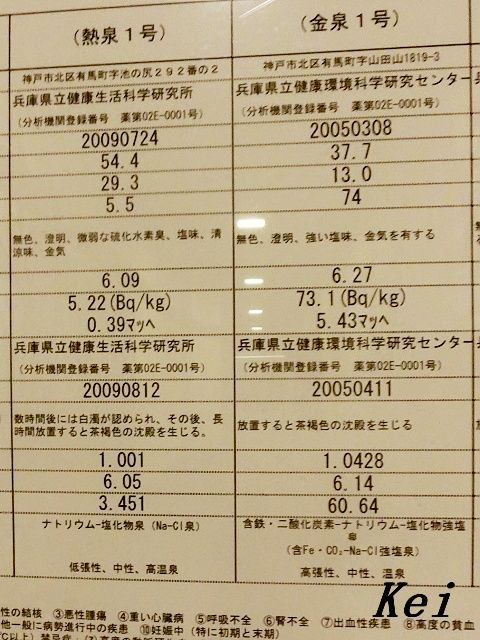 (熱泉1号)
(金泉1号)
神戸市北区有馬町字池の尻292番の2
神戸市北区有馬町字山田山1819-3
兵庫県立健康生活科学研究所
(分析機関登録番号 薬第02E-0001号)
兵庫県立健康環境科学研究センター
(分析機関登録番号 薬第02E-0001号)
20090724
20050308
54.4
37.7
29.3
13.0
5.5
74
無色、澄明、微弱な硫化水素臭、塩味、清
涼味、金気
無色、澄明、強い塩味、金気を有する
6.09
6.27
5.22(Bq/kg)
73.1(Bq/kg)
0.39マッヘ
5.43マッヘ
兵庫県立健康生活科学研究所
(分析機関登録番号 薬第02E-0001号)
兵庫県立健康環境科学研究センター
(分析機関登録番号 薬第02E-0001号)
20090812
20050411
数時間後には白濁が認められ、その後、長
時間放置すると茶褐色の沈殿を生じる。
放置すると茶褐色の沈殿を生じる
1.001
1.0428
6.05
6.14
3.451
60.64
ナトリウム-塩化物泉 (Na-Cl泉)
含鉄・二酸化炭素-ナトリウム-塩化物強塩
泉
(含Fe・CO₂-Na-Cl強塩泉)
低張性、中性、高温泉
高張性、中性、温泉
性の結核 ③悪性腫瘍 ④重い心臓病 ⑤呼吸不全 ⑥腎不全 ⑦出血性疾患 ⑧高度の貧血
他一般に病勢進行中の疾患 ⑩妊娠中 (特に初期と末期)
Kei